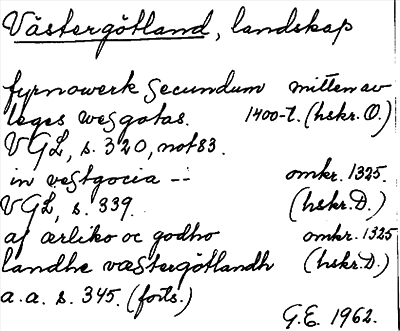 Västergötland, landskap
fyrnowerk secundum mitten av
leges wesgotas. 1400-t. (hskr. O.)
VGL, s. 320, not 83.
in vestgocia -- omkr. 1325.
VGL, s. 339. (hskr. D.)
af ærliko oc godho omkr. 1325
landhe væstergötlandh (hskr. D.)
a.a. s. 345. (forts.)
G.E. 1962.